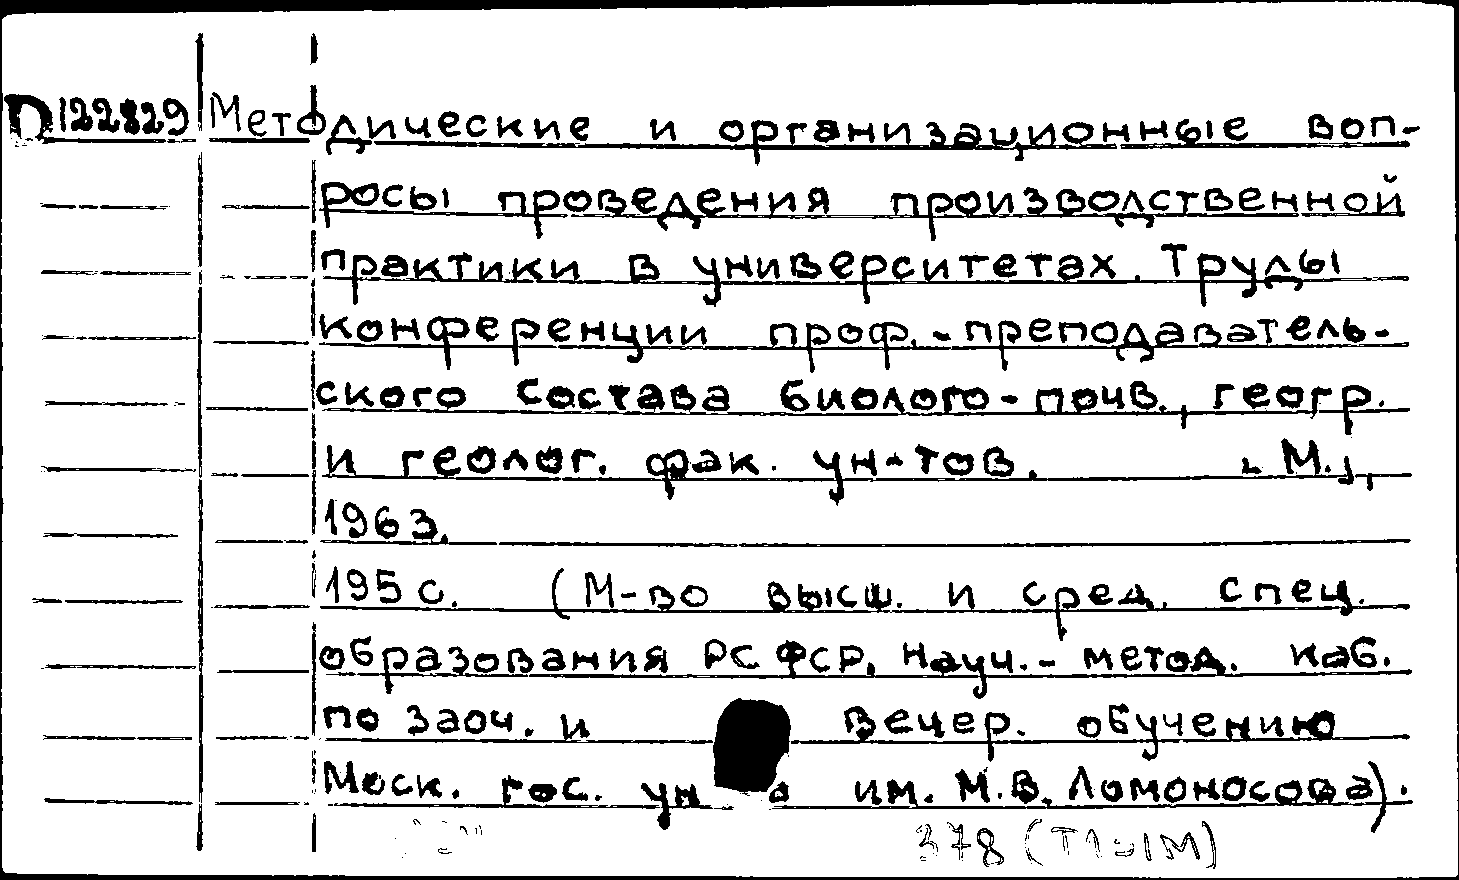 D122829 Методические и организационные воп-
росы проведения производственной
практики в университетах. Труды
конференции проф.-преподаватель-
ского состава биолого-почв., геогр.
и геолог. фак. ун-тов. [М.],
1963.
195 с. (М-во высш. и сред. спец.
образования РСФСР. Науч.-метод. каб.
по заоч. и вечер. обучению
Моск. гос. ун а им. М.В. Ломоносова).
378